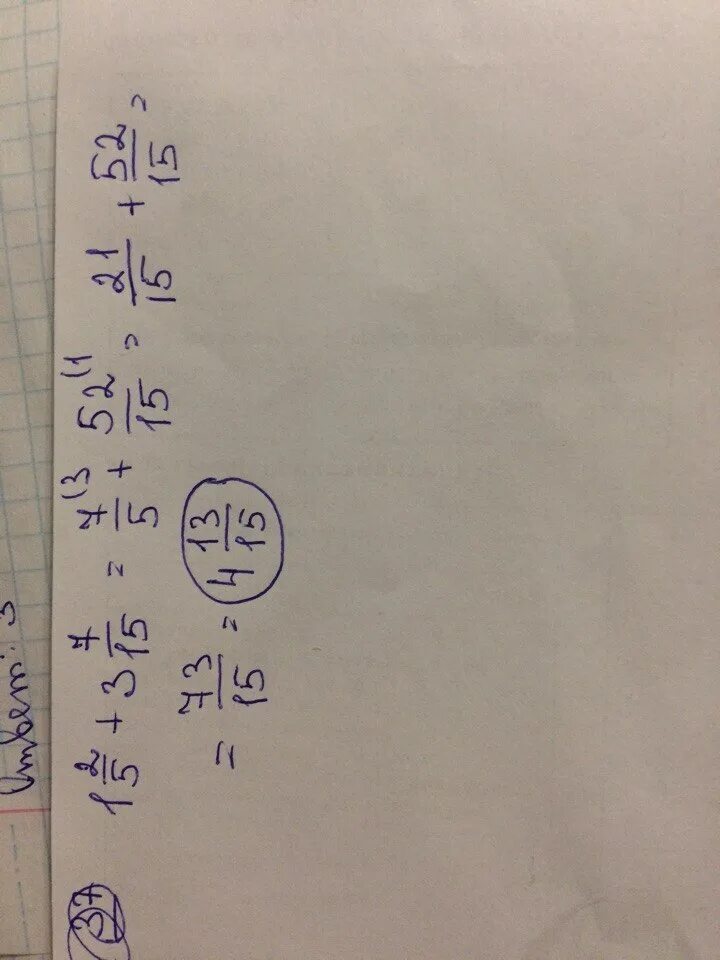 Ответ: 3
37 1 2/5 + 3 7/15 = 7/5 (3 + 52/15 (1 = 21/15 + 52/15 =
= 73/15 = 4 13/15